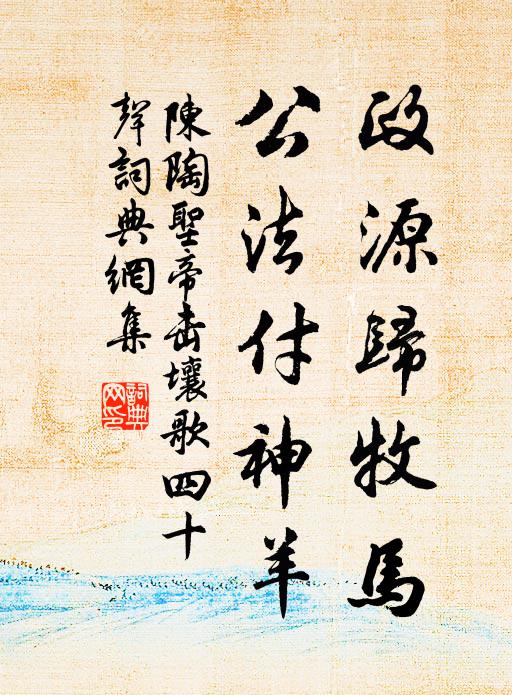 政源歸牧馬
公法付神羊
陳陶聖帝击壤歌四十
聲詞典網集
詞典
网印